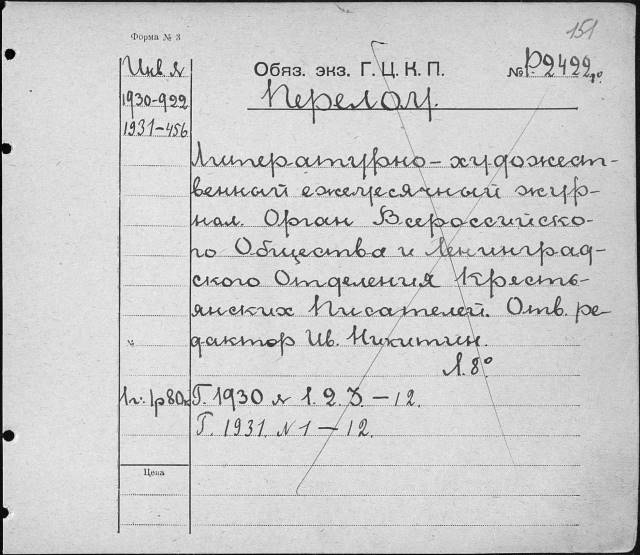 151
Форма № 3
Инв №
Обяз. экз. Г. Ц. К. П.
№ Р-2422
1930-922
Перелом.
1931-456
Литературно-художест-
венный ежемесячный жур-
нал. Орган Всероссийско-
го Общества и Ленинград-
ского Отделения Кресть-
янских Писателей. Отв. ре-
№
дактор Ив. Никитин.
Л. 8°
1г: 1р80к
Г. 1930 № 1. 2. 3. – 12.
Г. 1931. № 1 – 12.
Цена